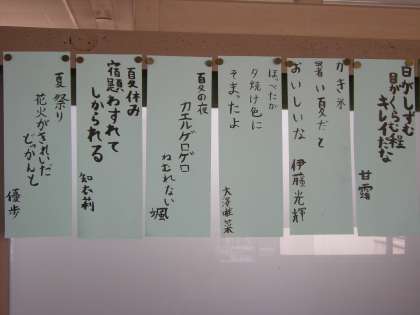 日がしずむ
目がくらむ程
キレイだな
甘露
かき氷
暑い夏だと
おいしいな
伊藤光輝
ほっぺたが
夕焼け色に
そまったよ
夏の夜
カエルゲロゲロ
ねむれない
颯
夏休み
宿題わすれて
しかられる
知本莉
夏祭り
花火がきれいだ
どっかんと
優歩